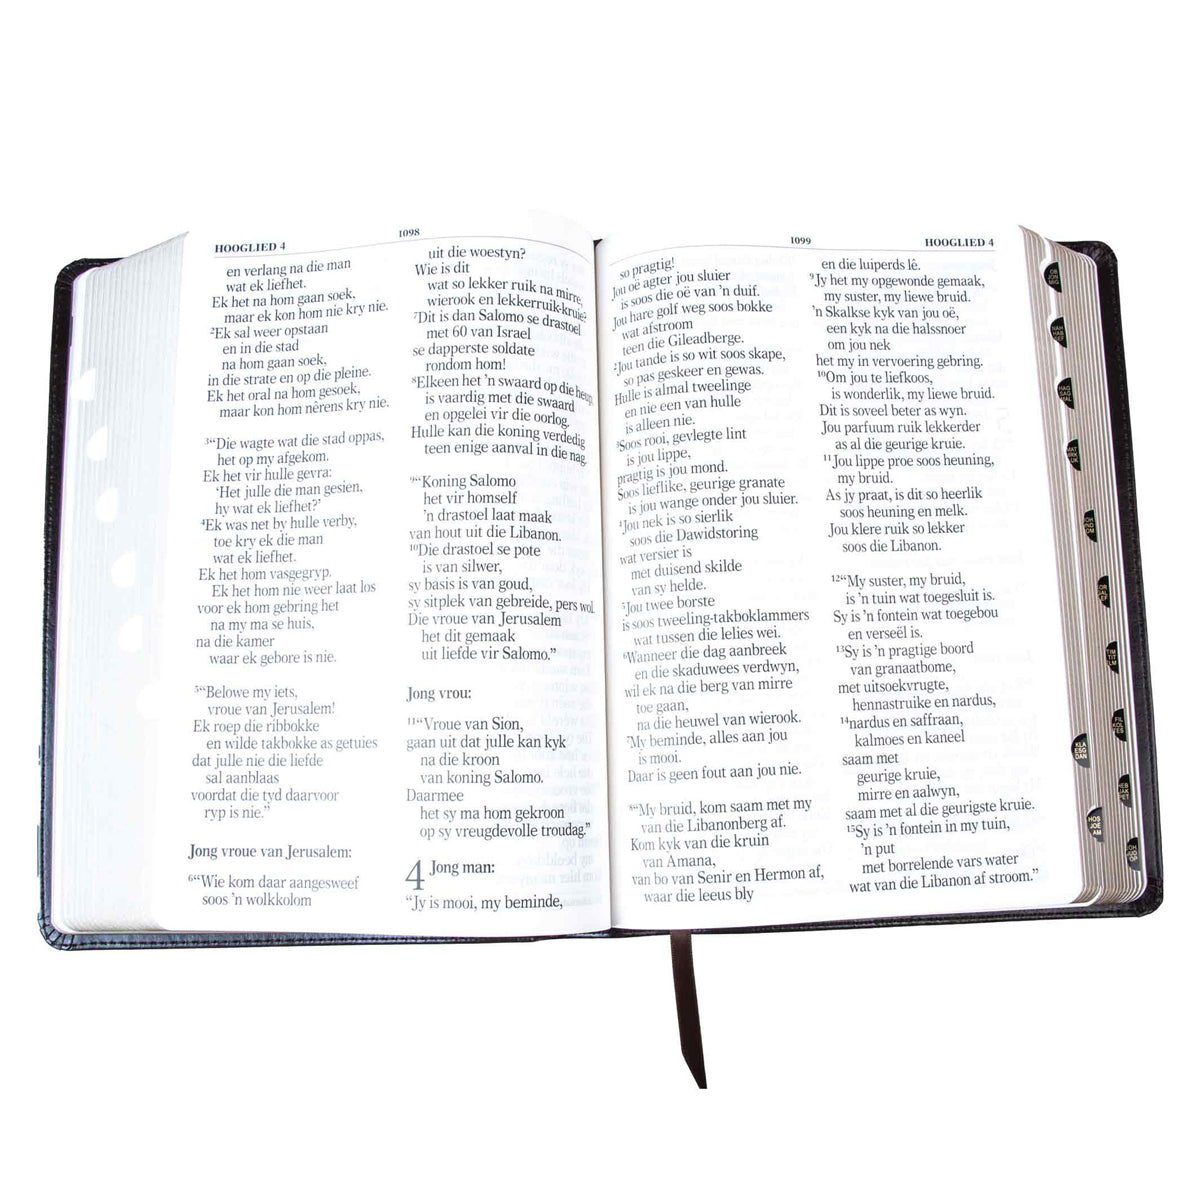 HOOGLIED 4
1098
en verlang na die man
wat ek liefhet.
Ek het na hom gaan soek,
maar ek kon hom nie kry nie.
2Ek sal weer opstaan
en in die stad
na hom gaan soek,
in die strate en op die pleine.
Ek het oral na hom gesoek,
maar kon hom nêrens kry nie.
3“Die wagte wat die stad oppas,
het op my afgekom.
Ek het vir hulle gevra:
‘Het julle die man gesien,
hy wat ek liefhet?’
4Ek was net by hulle verby,
toe kry ek die man
wat ek liefhet.
Ek het hom vasgegryp.
Ek het hom nie weer laat los
voor ek hom gebring het
na my ma se huis,
na die kamer
waar ek gebore is nie.
5“Belowe my iets,
vroue van Jerusalem!
Ek roep die ribbokke
en wilde takbokke as getuies
dat julle nie die liefde
sal aanblaas
voordat die tyd daarvoor
ryp is nie.”
Jong vroue van Jerusalem:
6“Wie kom daar aangesweef
soos ’n wolkkolom
uit die woestyn?
Wie is dit
wat so lekker ruik na mirre,
wierook en lekkerruik-kruie?
7Dit is dan Salomo se drastoel
met 60 van Israel
se dapperste soldate
rondom hom!
8Elkeen het ’n swaard op die heup,
is vaardig met die swaard
en opgelei vir die oorlog.
Hulle kan die koning verdedig
teen enige aanval in die nag.
9“Koning Salomo
het vir homself
’n drastoel laat maak
van hout uit die Libanon.
10Die drastoel se pote
is van silwer,
sy basis is van goud,
sy sitplek van gebreide, pers wol.
Die vroue van Jerusalem
het dit gemaak
uit liefde vir Salomo.”
Jong vrou:
11“Vroue van Sion,
gaan uit dat julle kan kyk
na die kroon
van koning Salomo.
Daarmee
het sy ma hom gekroon
op sy vreugdevolle troudag.”
4 Jong man:
“Jy is mooi, my beminde,
1099
HOOGLIED 4
so pragtig!
Jou oë agter jou sluier
is soos die oë van ’n duif.
Jou hare golf weg soos bokke
wat afstroom
teen die Gileadberge.
2Jou tande is so wit soos skape,
so pas geskeer en gewas.
Hulle is almal tweelinge
en nie een van hulle
is alleen nie.
3Soos rooi, gevlegte lint
is jou lippe,
pragtig is jou mond.
Soos lieflike, geurige granate
is jou wange onder jou sluier.
4Jou nek is so sierlik
soos die Dawidstoring
wat versier is
met duisend skilde
van sy helde.
5Jou twee borste
is soos tweeling-takboklammers
wat tussen die lelies wei.
6Wanneer die dag aanbreek
en die skaduwees verdwyn,
wil ek na die berg van mirre
toe gaan,
na die heuwel van wierook.
7My beminde, alles aan jou
is mooi.
Daar is geen fout aan jou nie.
8“My bruid, kom saam met my
van die Libanonberg af.
Kom kyk van die kruin
van Amana,
van bo van Senir en Hermon af,
waar die leeus bly
en die luiperds lê.
9Jy het my opgewonde gemaak,
my suster, my liewe bruid.
’n Skalkse kyk van jou oë,
een kyk na die halssnoer
om jou nek
het my in vervoering gebring.
10Om jou te liefkoos,
is wonderlik, my liewe bruid.
Dit is soveel beter as wyn.
Jou parfuum ruik lekkerder
as al die geurige kruie.
11Jou lippe proe soos heuning,
my bruid.
As jy praat, is dit so heerlik
soos heuning en melk.
Jou klere ruik so lekker
soos die Libanon.
12“My suster, my bruid,
is ’n tuin wat toegesluit is.
Sy is ’n fontein wat toegebou
en verseël is.
13Sy is ’n pragtige boord
van granaatbome,
met uitsoekvrugte,
hennastruike en nardus,
14nardus en saffraan,
kalmoes en kaneel
saam met
geurige kruie,
mirre en aalwyn,
saam met al die geurigste kruie.
15Sy is ’n fontein in my tuin,
’n put
met borrelende vars water
wat van die Libanon af stroom.”
OB
JON
MIG
NAH
HAB
SEF
HAG
SAG
MAL
MAT
MRK
LUK
JOH
HND
ROM
KOR
GAL
EF
TIM
TIT
FLM
FIL
KOL
TES
KLA
ESG
DAN
HEB
JAK
PET
HOS
JOE
AM
JOH
JUD
OP